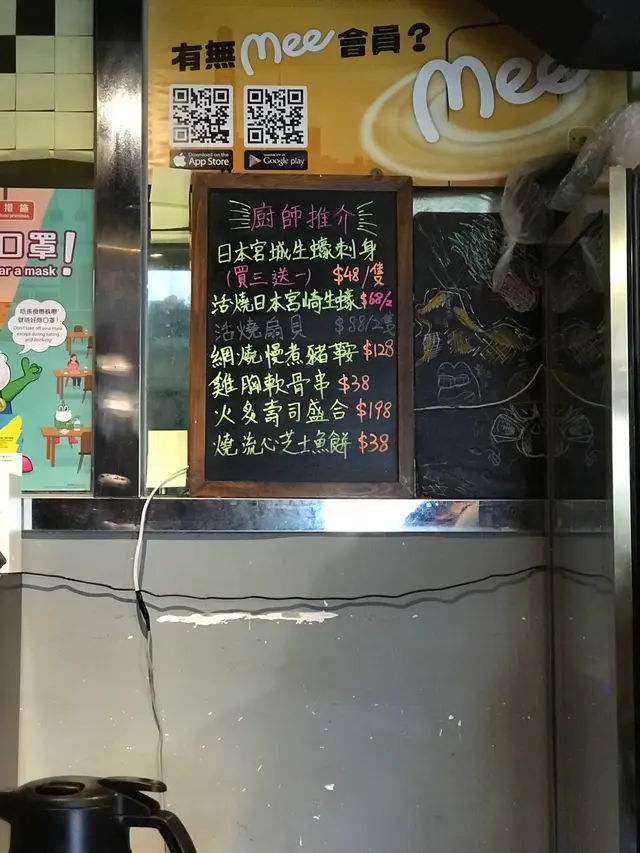 有無 mee 會員？
mee
Download on the App Store
Google play
措施
口罩！
ar a mask!
Don't take off your mask
except during eating
and drinking!
廚師推介
日本宮城生蠔刺身
(買三送一) $48/隻
活燒日本宮崎生蠔 $68/2
活燒扇貝 $88/2隻
網燒慢煮豬鞍 $128
雞胸軟骨串 $38
火炙壽司盛合 $198
燒流心芝士魚餅 $38